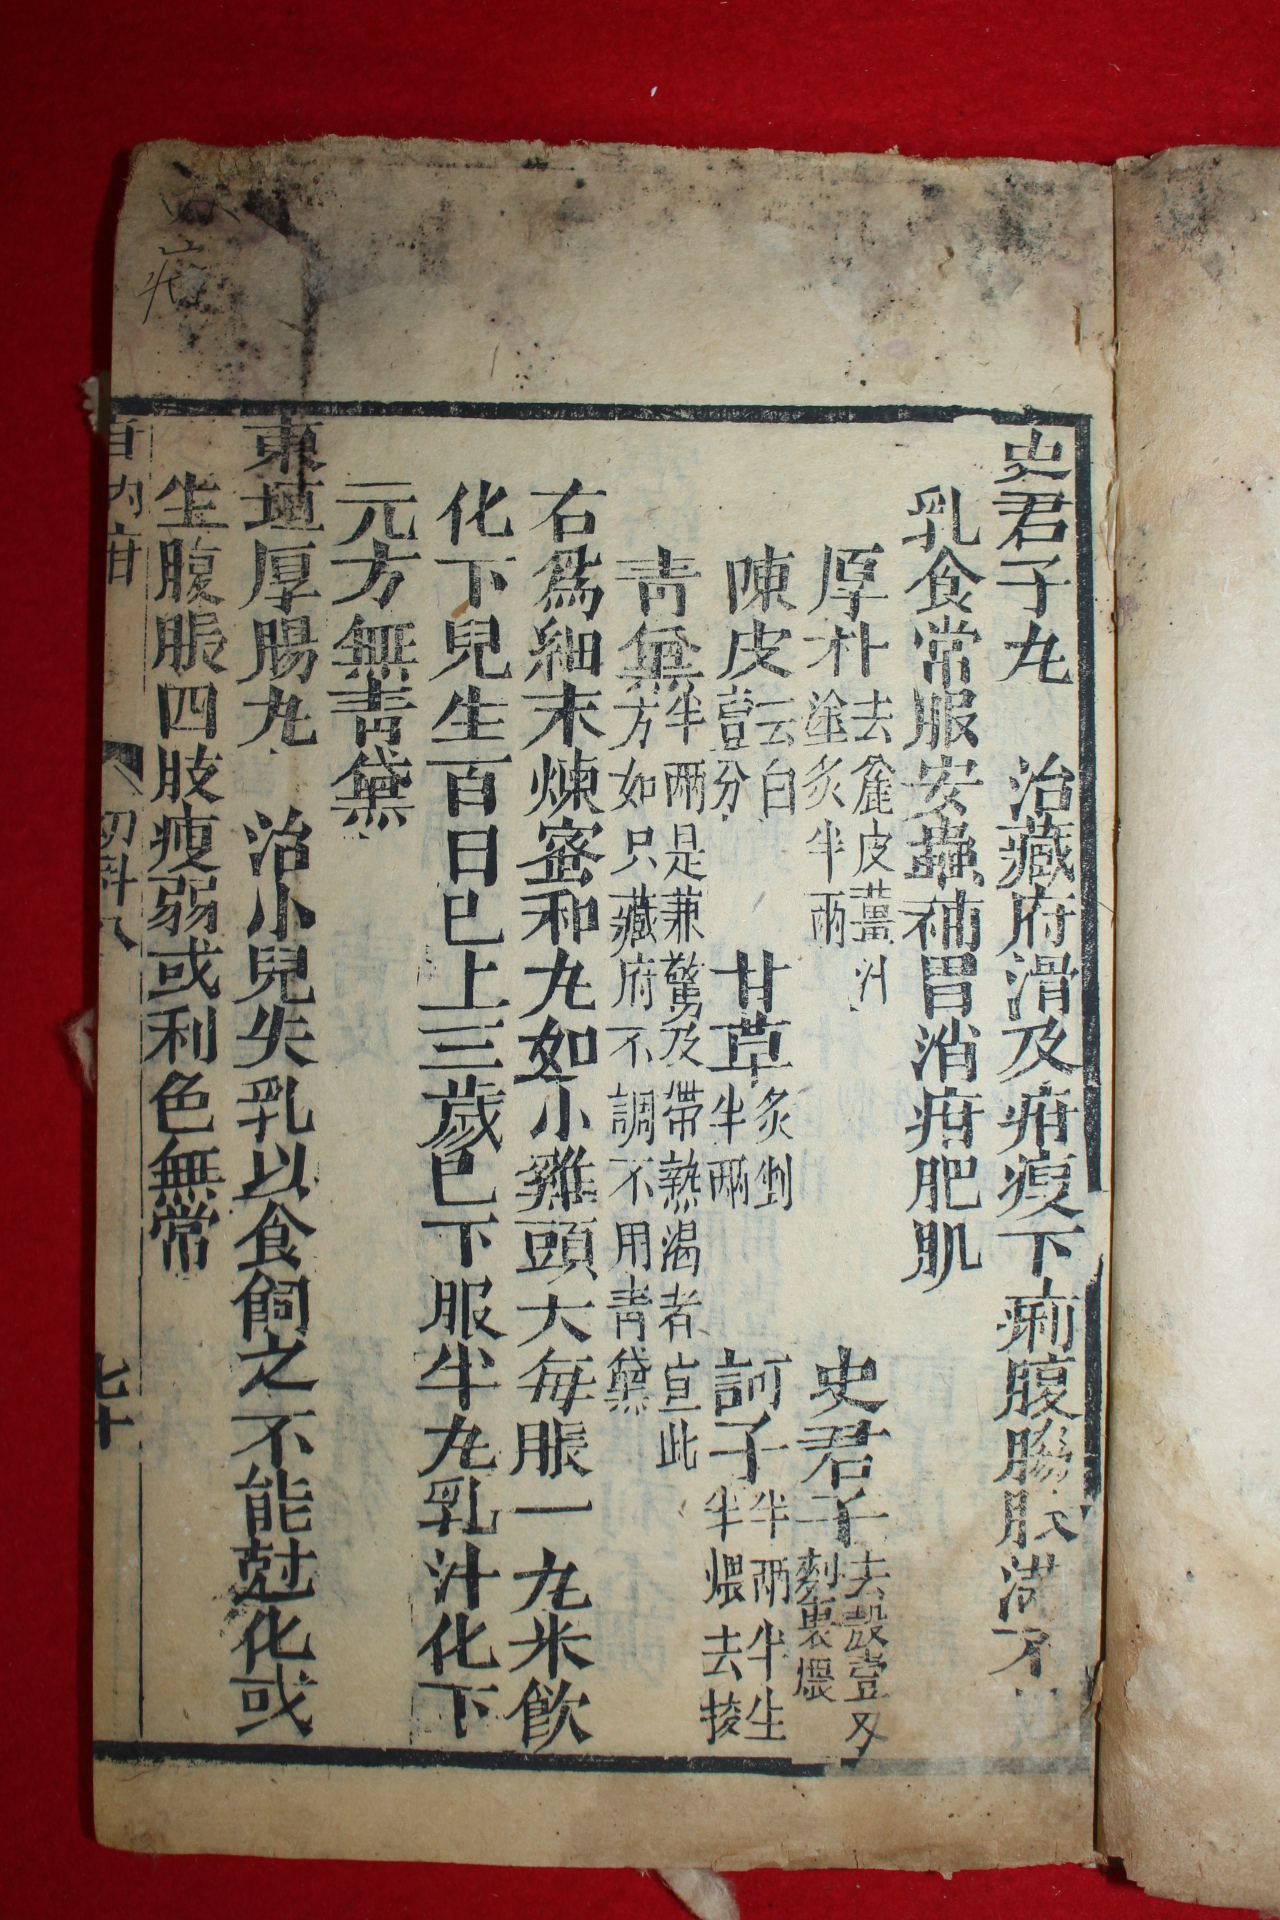 史君子丸　治藏府滑及疳瘦下痢腹脇脹滿不
乳食常服安蟲補胃消疳肥肌
厚朴去麄皮薑汁塗炙半兩　史君子去殼壹兩麪裹煨
陳皮去白壹分　甘草炙剉半兩　訶子半兩半生半煨去核
靑黛半兩是兼驚及帶熱渴者宣此方如只藏府不調不用靑黛
右爲細末煉蜜和丸如小雞頭大每脹一丸米飮
化下兒生百日已上三歲已下服半丸乳汁化下
元方無靑黛
東垣厚腸丸　治小兒失乳以食飼之不能尅化或
生腹脹四肢瘦弱或利色無常
百內疳　幼科八　七十